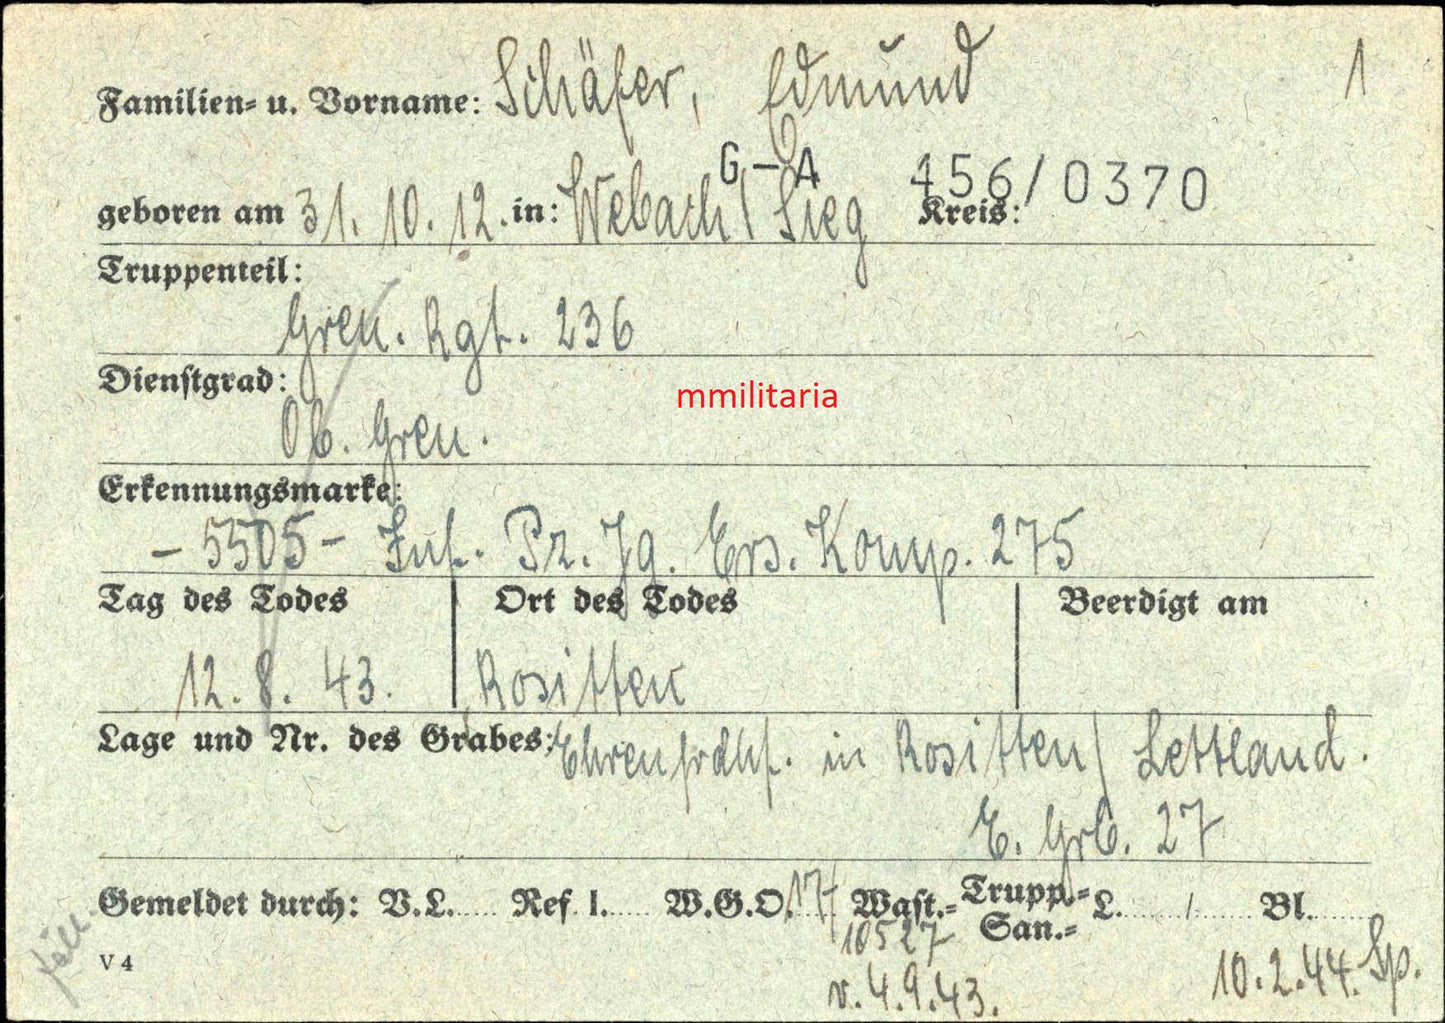 1
Familien- u. Vorname: Schäfer, Edmund
G-A 456/0370
geboren am 31. 10. 12. in: Webach/Sieg Kreis:
Truppenteil:
Gren. Rgt. 236
Dienstgrad:
mmilitaria
Ob. Gren.
Erkennungsmarke:
- 5505 - Inf. Pz. Jg. Ers. Komp. 275
Tag des Todes Ort des Todes Beerdigt am
12. 8. 43. Rositten
Lage und Nr. des Grabes: Ehrenfrdhf. in Rositten/Lettland.
E. Grb. 27
Gemeldet durch: V.L. Ref. I. W.G.O. 17 Wast.- Trupp.- L. / Bl.
San.-
10527
V 4
v. 4.9.43.
10.2.44. Sp.